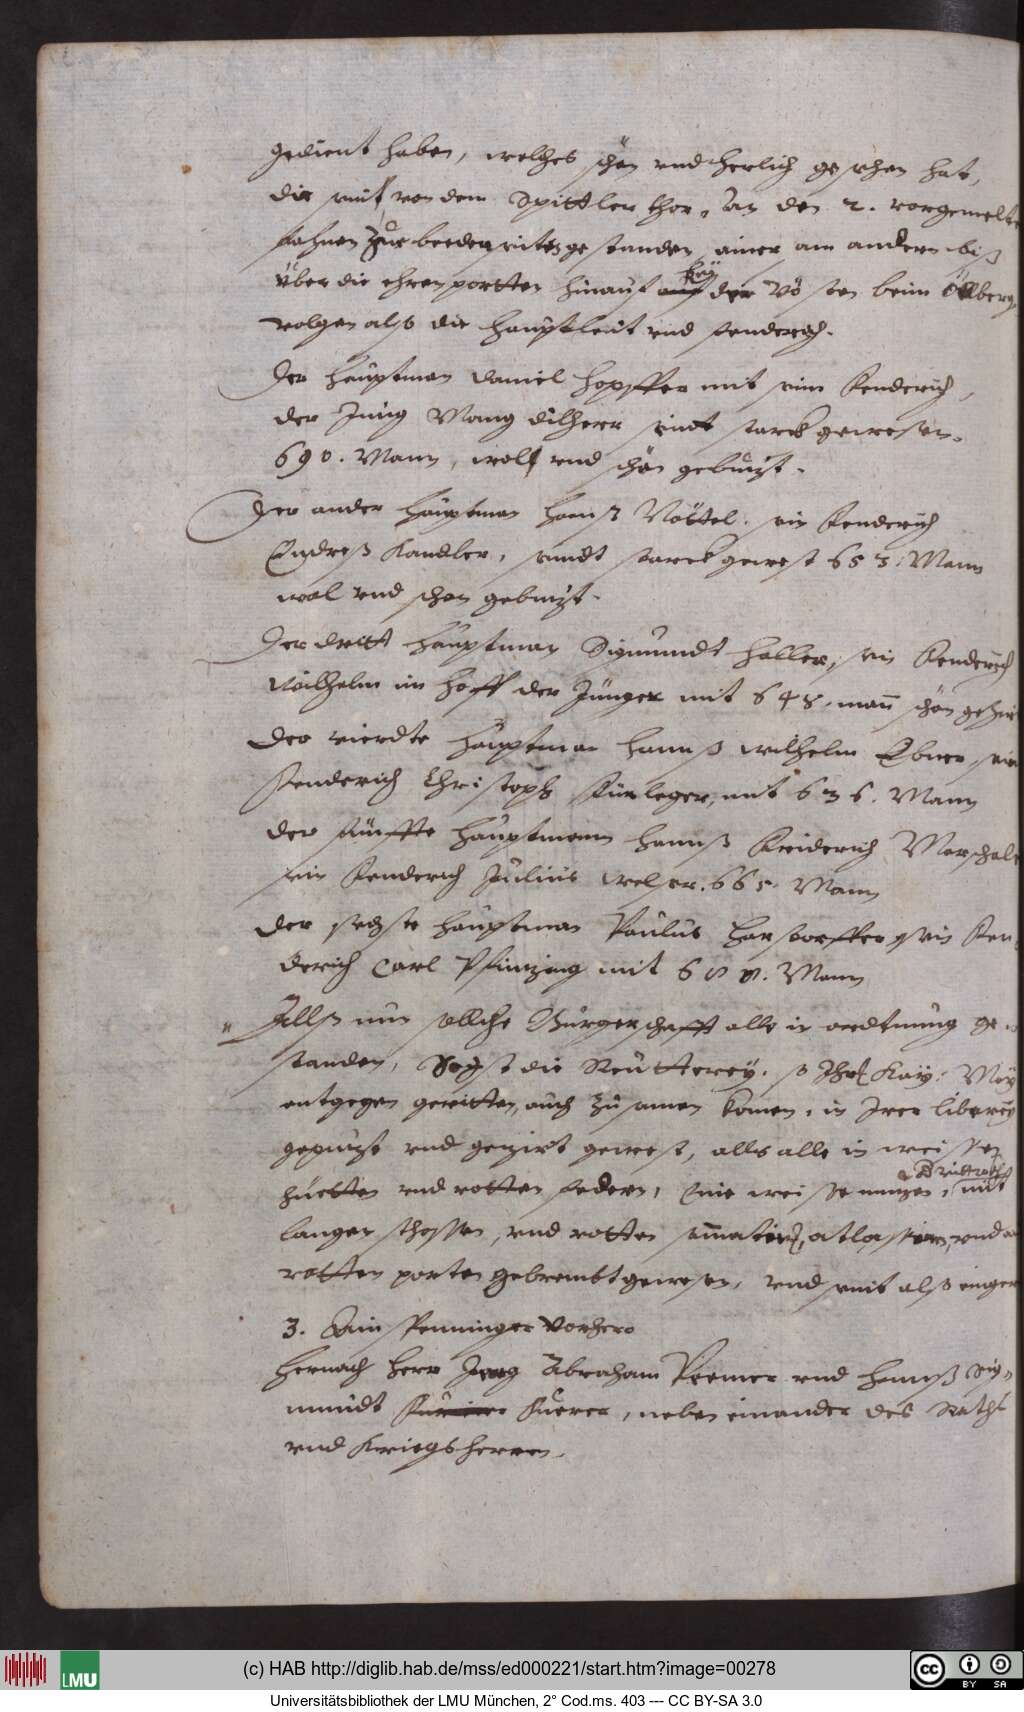 gedient haben, welches schön vnd herlich gesehen hat,
die seint von dem Spittler thor, an den 2. vorgemelte
fahnen zur beeden seites gestanden, ainer am andern biß
über die ehrenportten hinauf auf bey der Vösten beim Ölberg,
volgen also die hauptleüt vnd fenderich.
Der hauptman Daniel Hopffer mit seim fenderich,
der Jung Mang Dilherr seint starck gewesen.
690. Mann, woll vnd schön gebutzt.
Der ander hauptman hanß Nöttel. sein fenderich
Endreß Kandler, seindt starck gewest 653. Mann
wol vnd schon gebutzt.
Der dritt hauptman Sigmundt haller, sein fenderich
Wilhelm im hoff der Jünger mit 648. mann schön
Der vierdte hauptman hannß wilhelm Ebner, sein
fenderich Christoph fürleger, mit 636. Mann
der fünffte hauptmann hannß friderich Marschalt
sein fenderich Julius welser. 665. Mann
der sechste hauptman Paulus harstorffer sein fen
derich Carl Pfintzing mit 600. Mann
Allß nun solliche Burgerschafft alle in ordtnung ge
standen, die Reütterey. so Ihr Kay: May
entgegen geritten, auch zusamen komen, in Irer liberey
geputzt vnd geziert gewest, alls alle in weissen
hüetten vnd rotten federn, weisse mit
langen schossen, vnd rotten atlassen, vnd
rotten porten gebrembt gewesen, vnd seint also
3. Ain spenninger vorhero
hernach herr Jerg Abraham Peemer vnd hannß Sig=
mundt fuerer, neben einander des Raths
vnd Kriegsherren.
(c) HAB http://diglib.hab.de/mss/ed000221/start.htm?image=00278
LMU
cc BY SA
Universitätsbibliothek der LMU München, 2° Cod.ms. 403 --- CC BY-SA 3.0